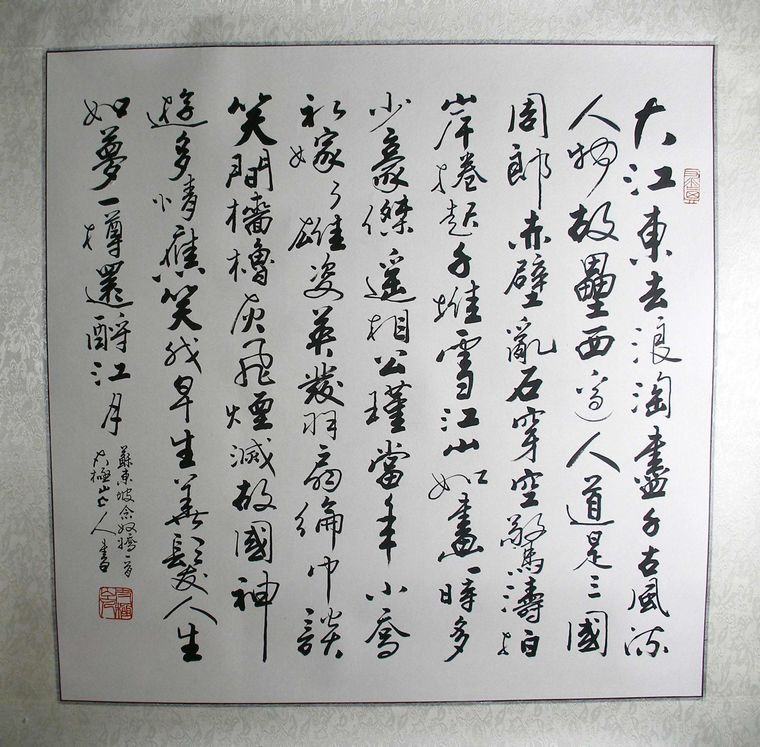 大江東去浪淘盡千古風流
人物故壘西邊人道是三國
周郎赤壁亂石穿空驚濤拍
岸捲起千堆雪江山如畫一時多
少豪傑遙相公瑾當年小喬
初嫁了雄姿英發羽扇綸巾談
笑間檣櫓灰飛煙滅故國神
遊多情應笑我早生華髮人生
如夢一樽還酹江月
蘇東坡念奴嬌一首
人書